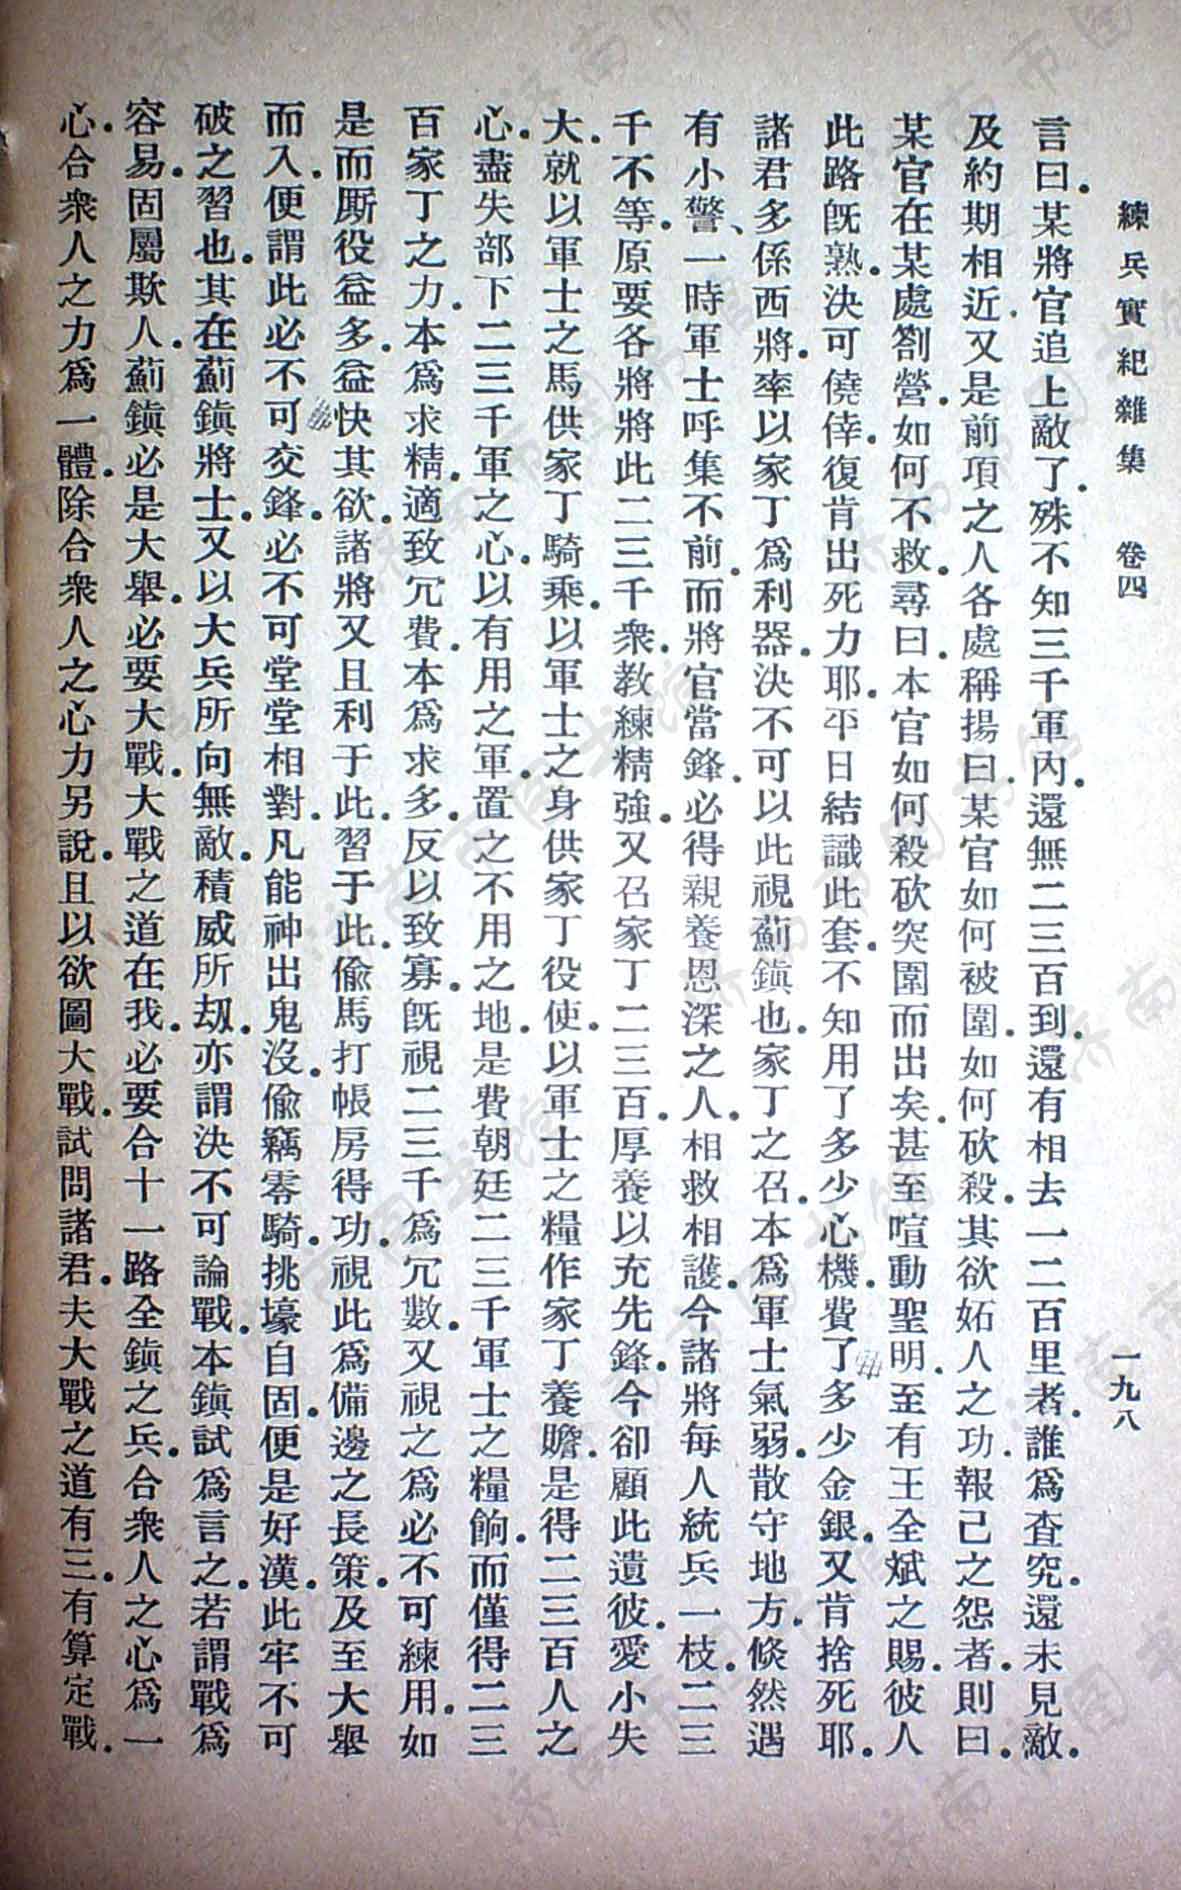 練兵實紀雜集 卷四 一九八
言曰。某將官追上敵了。殊不知三千軍內。還無二三百到。還有相去一二百里者。誰爲查究。還未見敵。
及約期相近。又是前項之人各處稱揚曰。某官如何被圍。如何砍殺。其欲妬人之功。報己之怨者。則曰。
某官在某處劄營。如何不救。尋曰。本官如何殺砍突圍而出矣。甚至喧動聖明。至有王全斌之賜。彼人
此路旣熟。決可僥倖。復肯出死力耶。平日結識此套。不知用了多少心機。費了多少金銀。又肯捨死耶。
諸君多係西將。率以家丁爲利器。決不可以此視薊鎭也。家丁之召。本爲軍士氣弱。散守地方。倏然遇
有小警、一時軍士呼集不前。而將官當鋒。必得親養恩深之人。相救相護。今諸將每人統兵一枝。二三
千不等。原要各將將此二三千衆。教練精強。又召家丁二三百。厚養以充先鋒。今卻顧此遺彼。愛小失
大。就以軍士之馬供家丁騎乘。以軍士之身供家丁役使。以軍士之糧作家丁養贍。是得二三百人之
心。盡失部下二三千軍之心。以有用之軍。置之不用之地。是費朝廷二三千軍士之糧餉。而僅得二三
百家丁之力。本爲求精。適致冗費。本爲求多。反以致寡。旣視二三千爲冗數。又視之爲必不可練用。如
是而厮役益多。益快其欲。諸將又且利于此。習于此。偷馬打帳房得功。視此爲備邊之長策。及至大舉
而入。便謂此必不可交鋒。必不可堂堂相對。凡能神出鬼沒。偷竊零騎。挑壕自固。便是好漢。此牢不可
破之習也。其在薊鎭將士。又以大兵所向無敵。積威所刼。亦謂決不可論戰。本鎭試爲言之。若謂戰爲
容易。固屬欺人。薊鎭必是大舉。必要大戰。大戰之道在我。必要合十一路全鎭之兵。合衆人之心爲一
心。合衆人之力爲一體。除合衆人之心力另說。且以欲圖大戰。試問諸君。夫大戰之道有三。有算定戰。